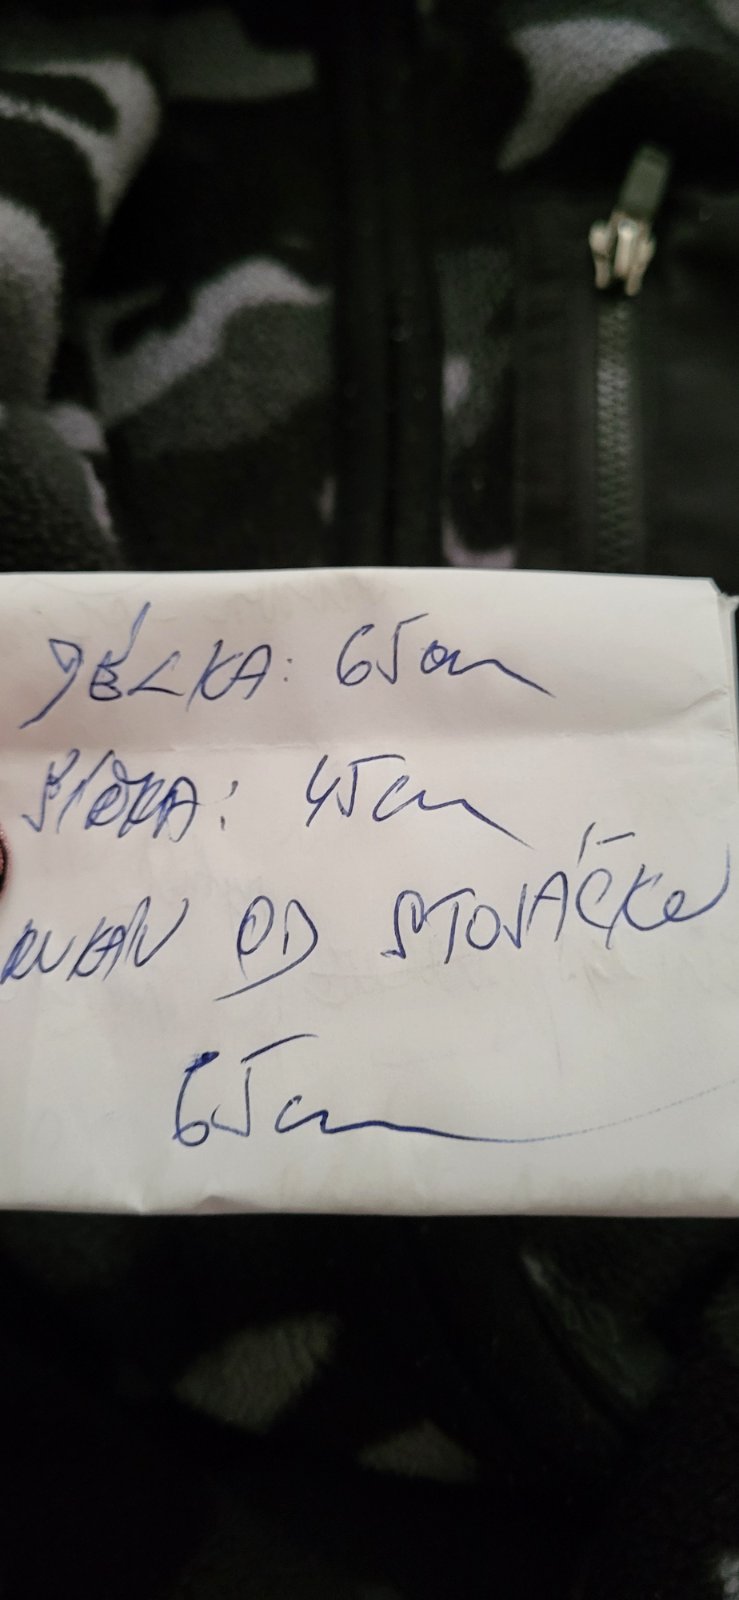 DÉLKA: 65cm
ŠÍŘKA: 45cm
RUKÁV OD STOJÁČKU
65cm